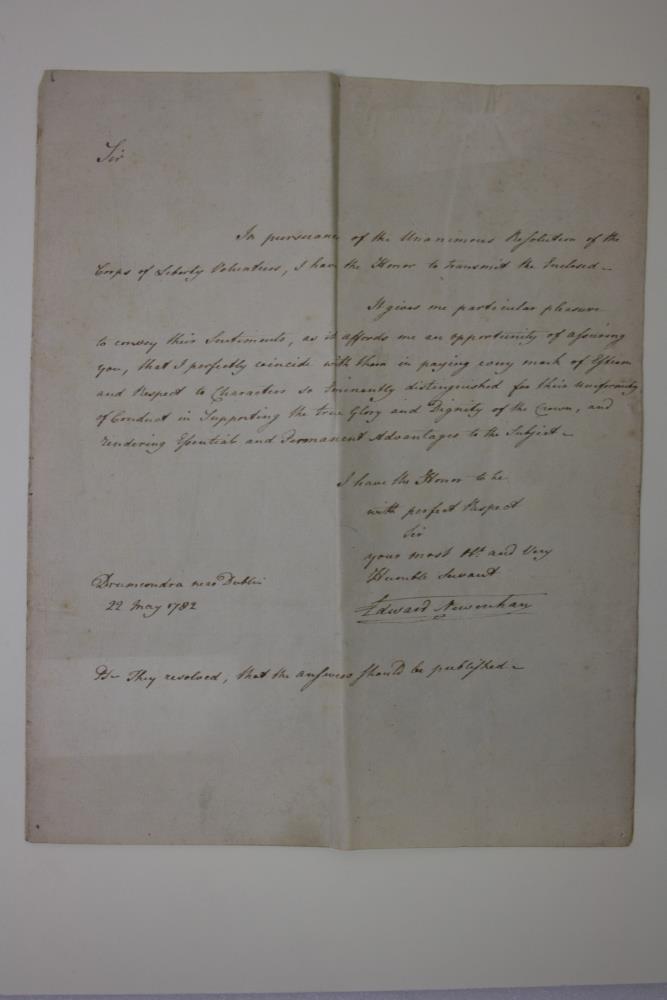 Sir
In pursuance of the Unanimous Resolution of the
Corps of Liberty Volunteers, I have the Honor to transmit the Enclosed—
It gives me particular pleasure
to convey their Sentiments, as it affords me an opportunity of assuring
you, that I perfectly coincide with them in paying every mark of Esteem
and Respect to Characters so Eminently distinguished for their Uniformity
of Conduct in Supporting the true Glory and Dignity of the Crown, and
rendering Essential and Permanent Advantages to the Subject—
I have the Honor to be
with perfect Respect
Sir
your most Obt. and Very
Humble Servant
Drumcondra near Dublin
22 May 1782
Edward Newenham
Ps— They resolved, that the answers should be published—